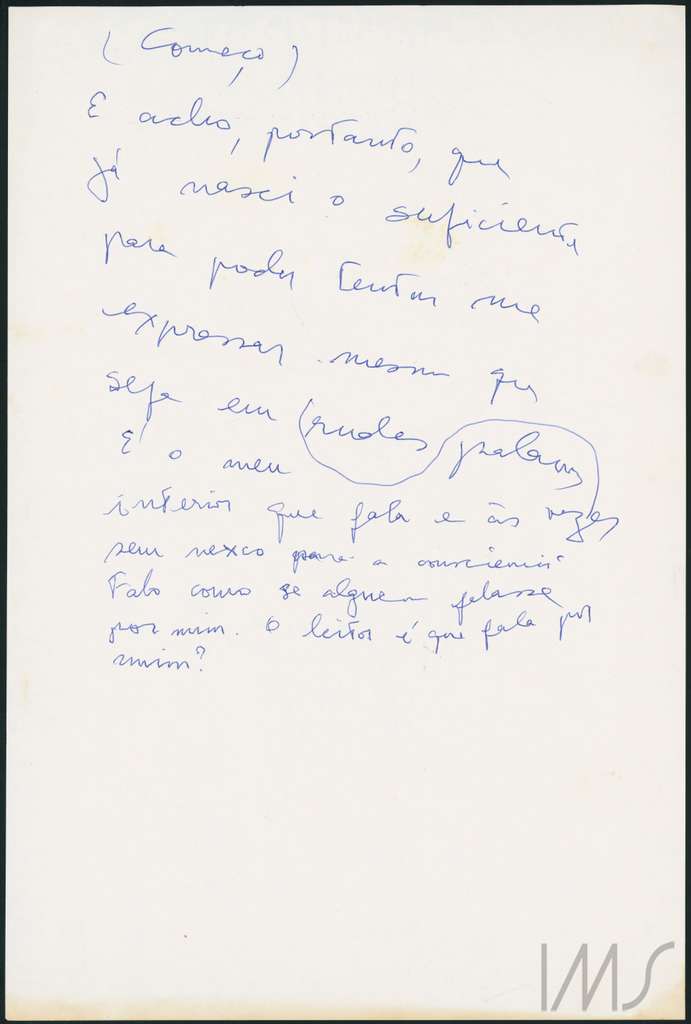 (Começo)
E acho, portanto, que
já nasci o suficiente
para poder tentar me
expressar mesmo que
seja em rudes palavras
É o meu
interior que fala e às vezes
sem nexco para a consciencia
Falo como se alguem falasse
por mim. O leitor é que fala por
mim?
IMS